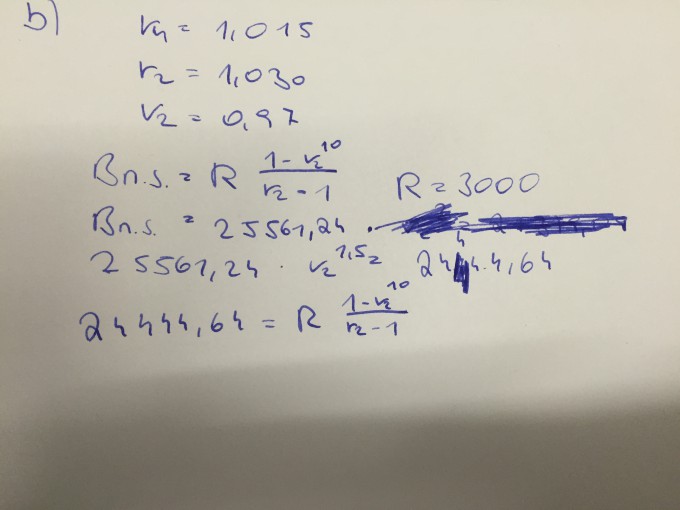 b)
r4 = 1,015
r2 = 1,030
v2 = 0,97
Bn.s. = R (1-v2^10)/(r2-1) R = 3000
Bn.s. = 25561,24 .
25561,24 . v2^1,5 = 24444,64
24444,64 = R (1-v2^10)/(r2-1)